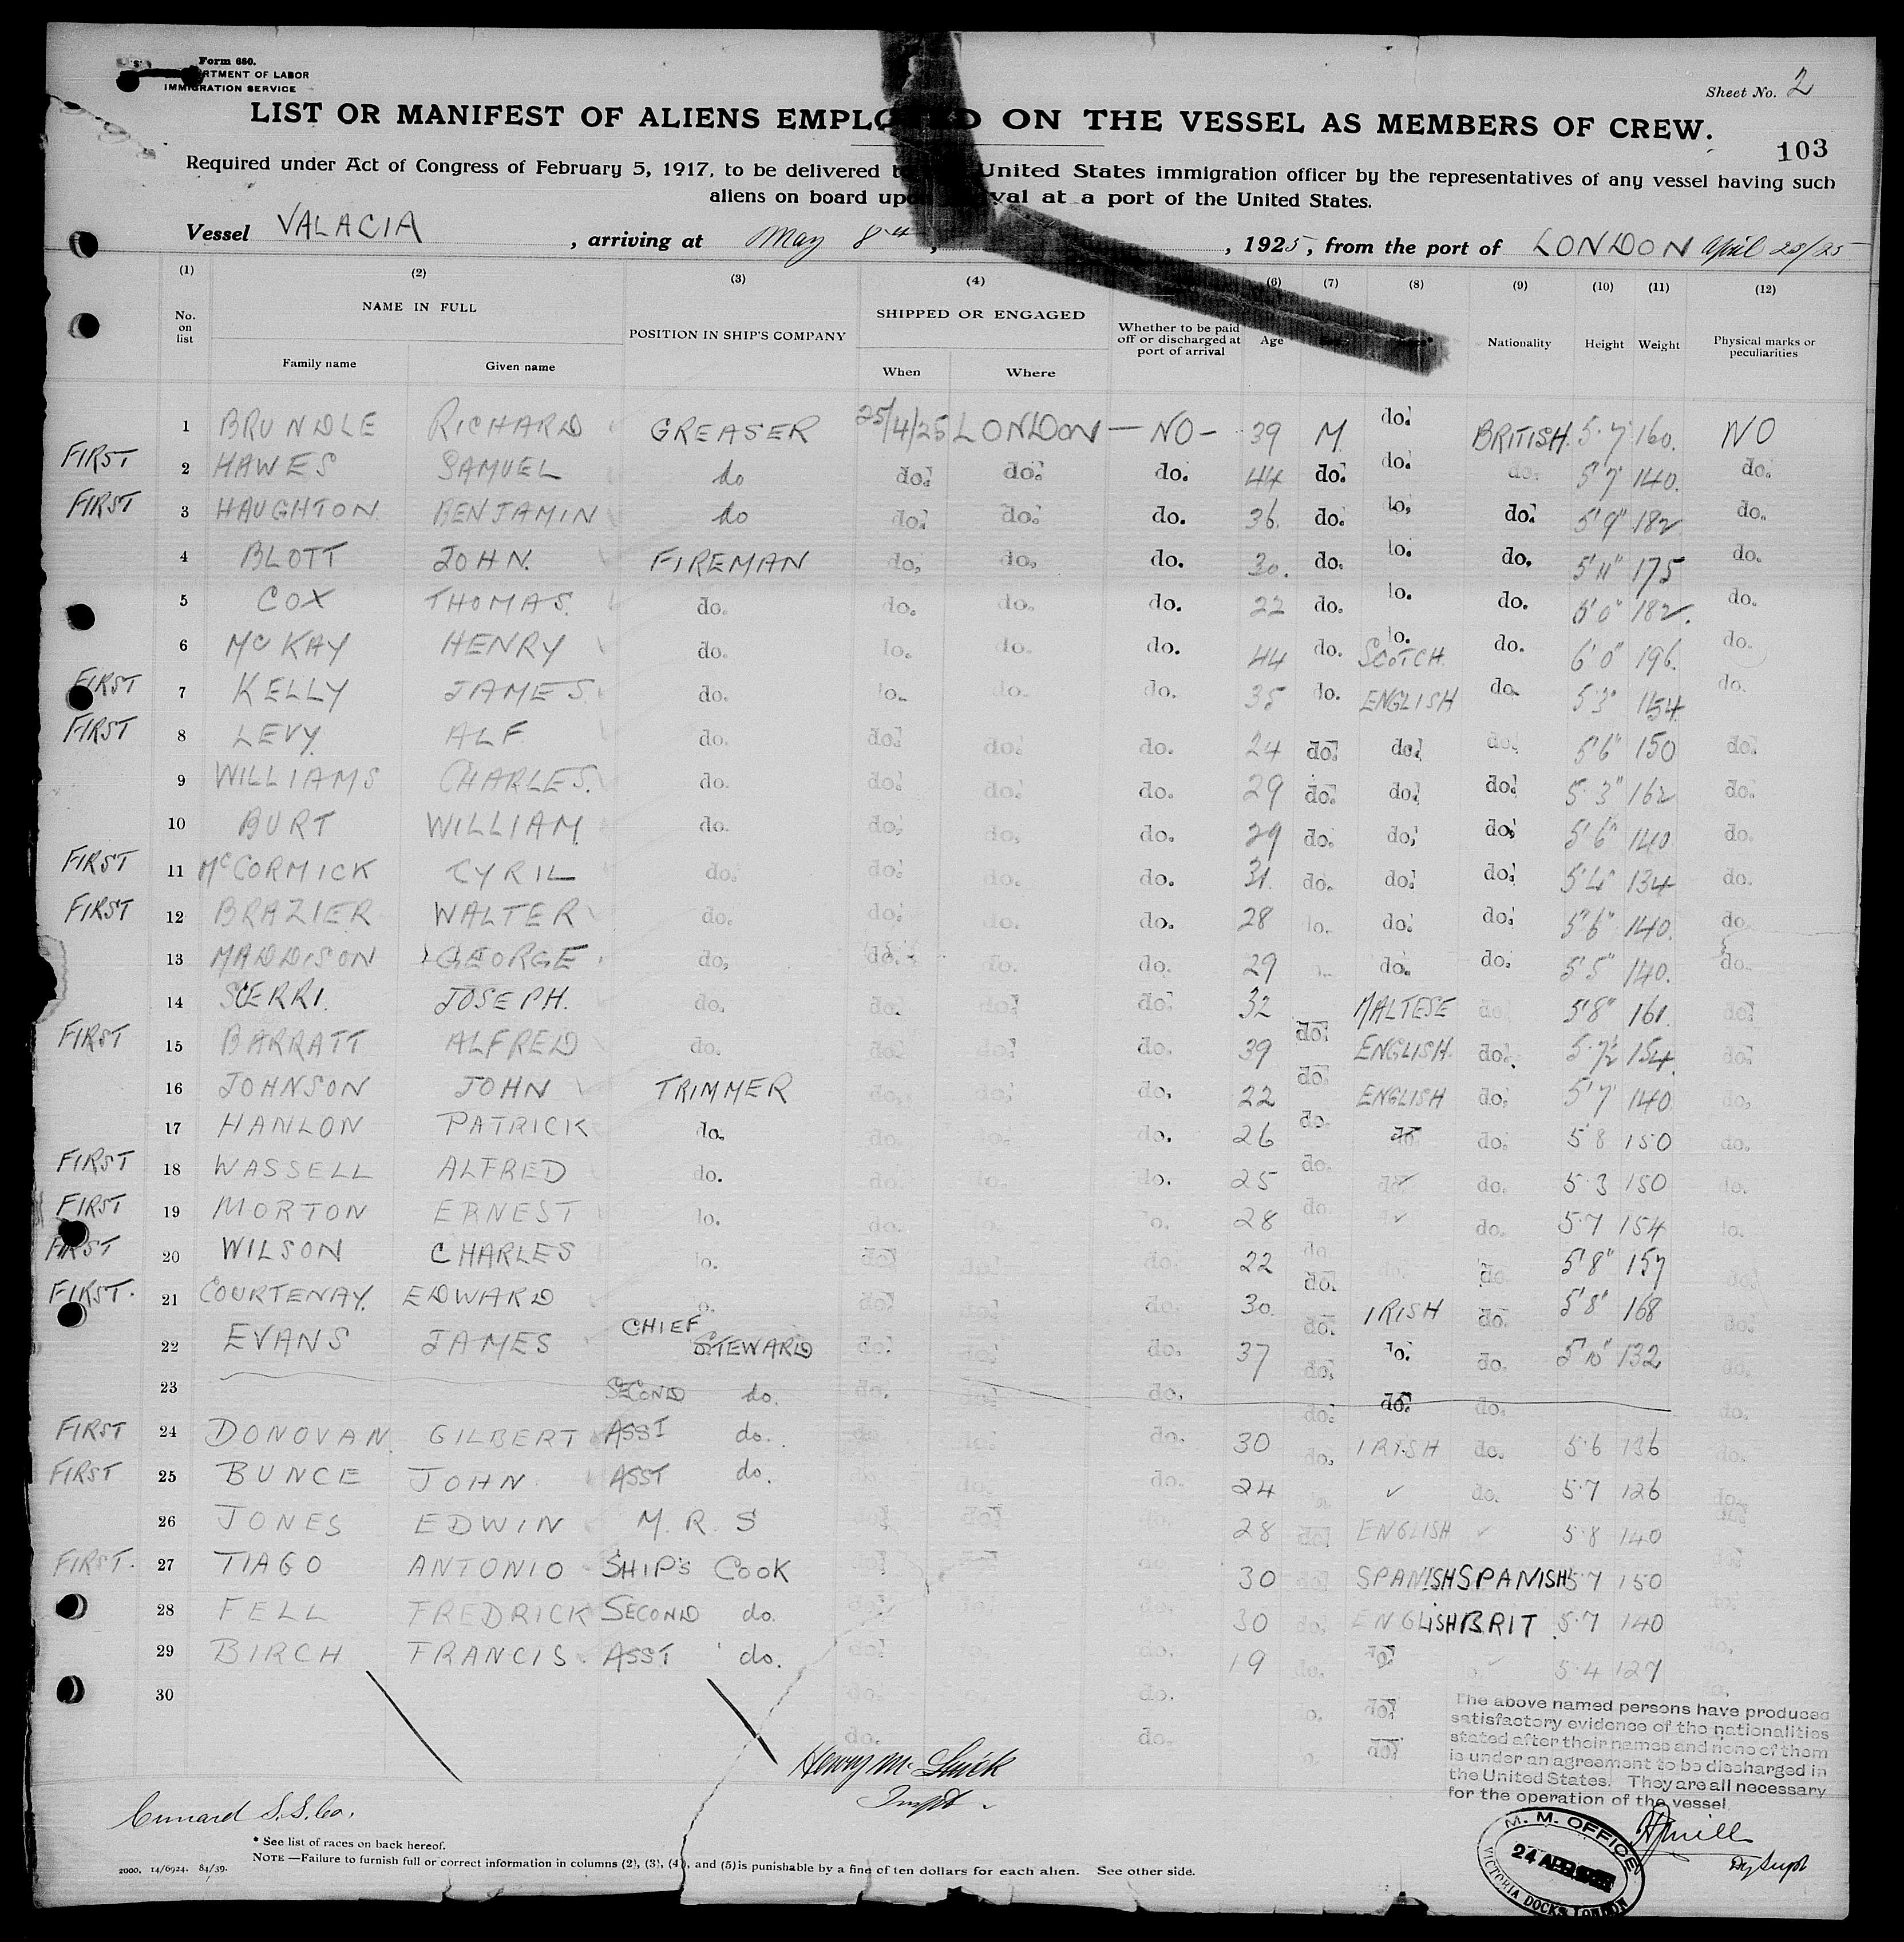 Form 680.
RTMENT OF LABOR
IMMIGRATION SERVICE
Sheet No. 2
LIST OR MANIFEST OF ALIENS EMPLOYED ON THE VESSEL AS MEMBERS OF CREW.
103
Required under Act of Congress of February 5, 1917, to be delivered t United States immigration officer by the representatives of any vessel having such
aliens on board upon arrival at a port of the United States.
Vessel VALACIA , arriving at May 8th , , 1925, from the port of LONDON April 25/25
(1) (2) (3) (4) (6) (7) (8) (9) (10) (11) (12)
No. on list NAME IN FULL POSITION IN SHIP'S COMPANY SHIPPED OR ENGAGED Whether to be paid off or discharged at port of arrival Age Nationality Height Weight Physical marks or peculiarities
Family name Given name When Where
1 BRUNDLE RICHARD GREASER 25/4/25 LONDON — NO - 39 M do. BRITISH. 5·7 160. NO
FIRST 2 HAWES SAMUEL do do. do. do. 44 do. do. do. 5'7" 140. do.
FIRST 3 HAUGHTON. BENJAMIN do do. do. do. 36. do. lo. do. 5'9" 182 do.
4 BLOTT JOHN. FIREMAN do. do. do. 30. do. lo. do. 5'11" 175 do.
5 COX THOMAS. do. do. do. do. 22 do. lo. do. 182. do.
6 McKAY HENRY do. lo. do. do. 44 do. lo. SCOTCH. do. 6'0" 196. do.
FIRST 7 KELLY JAMES. do. lo. do. do. 35 do. ENGLISH do. 5'3" 154 do.
FIRST 8 LEVY. ALF. do. do. do. do. 24 do. do. do. 5'6" 150 do.
9 WILLIAMS CHARLES. do. do. do. do. 29 do. do. do. 5·3" 162 do.
10 BURT WILLIAM. do. do. do. do. 29 do. do. do. 5'6" 140 do.
FIRST 11 McCORMICK CYRIL do. do. do. do. 31. do. do. do. 5'4" 134 do.
FIRST 12 BRAZIER WALTER do. do. do. do. 28 lo. do. do. 5'6" 140. do.
13 MADDISON GEORGE do. do. do. do. 29 do. do. 5'5" 140. do.
14 SCERRI. JOSEPH. do. do. do. do. 32 MALTESE do. 5'8" 161. do.
FIRST 15 BARRATT ALFRED do. do. do. do. 39 do. ENGLISH. do. 5·7½ 154. do.
16 JOHNSON JOHN TRIMMER do. do. do. 22 do. ENGLISH do. 5'7 140 do.
17 HANLON PATRICK do. do. lo. do. 26 do. do. do. 5 8 150 do.
FIRST 18 WASSELL ALFRED do. do. do. do. 25 do. do. do. 5·3 150 do.
FIRST 19 MORTON ERNEST lo. do. o. o. 28 do. ✓ do. 5·7 154 lo.
FIRST 20 WILSON CHARLES lo. do. do. do. 22 do do. 5'8" 157 do.
FIRST. 21 COURTENAY. EDWARD o. do. do. do. 30. do. IRISH do. 5'8" 168 do.
22 EVANS JAMES CHIEF STEWARD do. do. do. 37 do. lo. do. 5'10" 132 do.
23 SECOND do. do. do. do. do. do. do. do.
FIRST 24 DONOVAN. GILBERT ASST do. do. do. do. 30 do. IRISH do. 5·6 136 do.
FIRST 25 BUNCE JOHN ASST do. do. do. 24 ✓ do. 5·7 126 do.
26 JONES EDWIN M. R. S do. 28 do. ENGLISH ✓ 5·8 140
FIRST. 27 TIAGO ANTONIO SHIP'S COOK do. 30 do. SPANISH SPANISH 5·7 150 do.
28 FELL FREDRICK SECOND do. do. do. do. 30 do. ENGLISH BRIT. 5·7 140 do.
29 BIRCH FRANCIS. ASST do. do. do. do. 19 do. do. 5·4 127 lo.
30 do. do. do. lo. do. do.
do. do. o. do.
The above named persons have produced
satisfactory evidence of the nationalities
stated after their names and none of them
is under an agreement to be discharged in
the United States. They are all necessary
for the operation of the vessel.
Cunard S.S. Co.
* See list of races on back hereof.
NOTE—Failure to furnish full or correct information in columns (2), (3), (4), and (5) is punishable by a fine of ten dollars for each alien. See other side.
2000. 14/6924. 84/39.
M. M. OFFICE
24 APR
VICTORIA DOCKS LONDON
Dy Supt